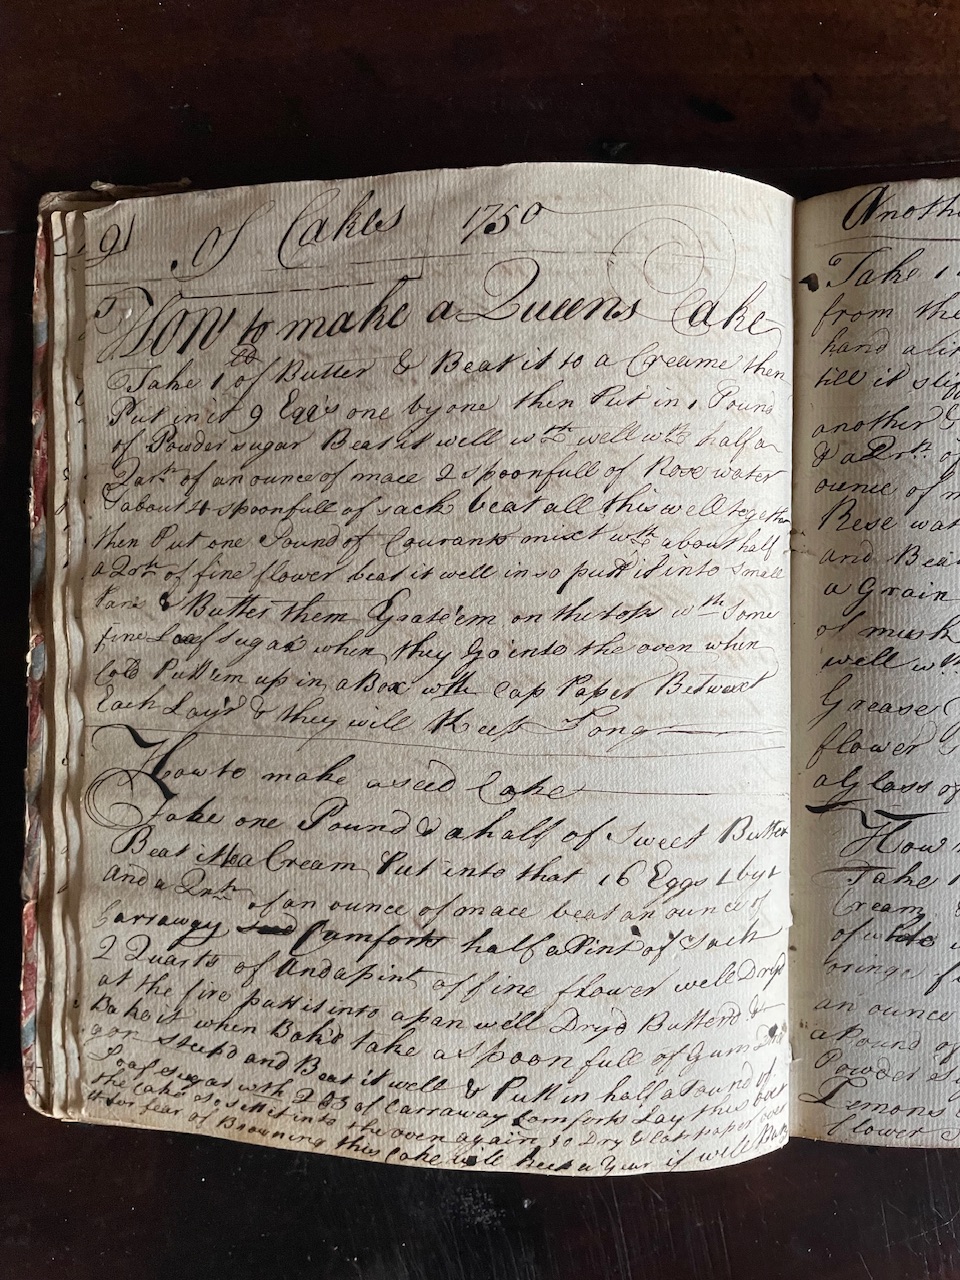 91 Of Cakes 1750
How to make a Queens Cake
Take 1 lb of Butter & Beat it to a Creame then
Put in it 9 Eggs one by one then Put in 1 Pound
of Powder sugar Beat it well wth well wth half a
Qarth of an ounce of mace 2 spoonfull of Rose water
& about 4 spoonfull of sack beat all this well together
then Put one Pound of Courants mixt wth about half
a Qrth of fine flower beat it well in so putt it into small
Pans & Butter them Grate'em on the tops wth Some
fine Loaf sugar when they Go into the oven when
Cold Putt'em up in a Box wth Cap Paper Betwext
Each Lay'r & they will Keep Long
How to make a seed Cake
Take one Pound & a half of Sweet Butter
Beat it to a Cream Put into that 16 Eggs 1 by 1
and a Qrth of an ounce of mace beat an ounce of
Carraway Comforts half a Pint of Sack
2 Quarts of And a pint of fine flower well Dryd
at the fire putt it into a pan well Dryd Butterd &
Bake it when Bak'd take a spoon full of Gum
gon steepd and Beat it well & Putt in half a Pound of
Loaf sugar with 2 oz of Carraway Comforts Lay this
the Cake so sett it into the oven again to Dry & paper over
it for fear of Browning this Cake will Keep a Year if well Bak
Anoth
Take 1
from the
hand a li
till it stif
another
& a Qrth of
ounce of m
Rose wat
and Bea
a Grain
of musk
well wth
Grease
flower
a Glass of
How
Take
Cream
of white
oringe f
an ounce
a Pound of
Powder
Lemons
flower